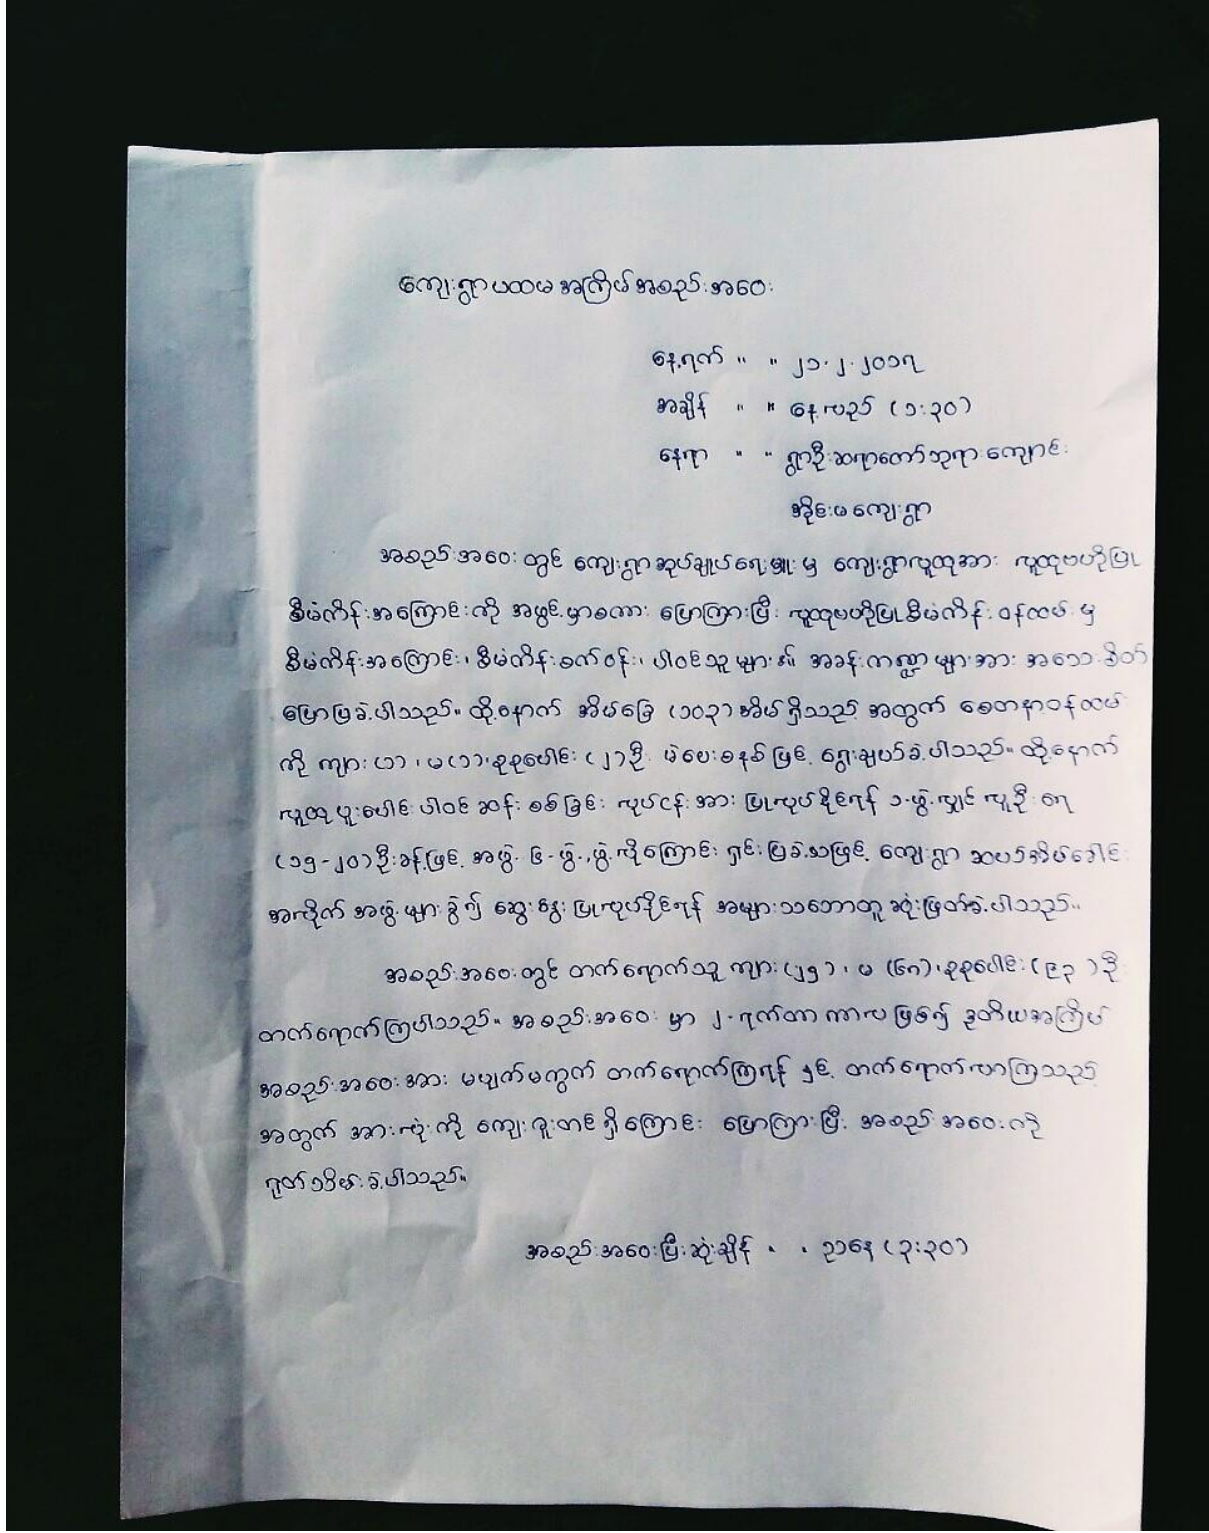 ကျေးရွာပထမအကြိမ်အစည်းအဝေး
နေ့ရက် " " ၂၁.၂.၂၀၁၇
အချိန် " " နေ့လည် (၁:၃၀)
နေရာ " " ရွာဦးဆရာတော်ဘုရားကျောင်း
အိုင်းမကျေးရွာ
အစည်းအဝေးတွင် ကျေးရွာအုပ်ချုပ်ရေးမှူးမှ ကျေးရွာလူထုအား လူထုဗဟိုပြု
စီမံကိန်းအကြောင်းကို အဖွင့်မှာစကား ပြောကြားပြီး လူထုဗဟိုပြုစီမံကိန်းဝန်ထမ်းမှ
စီမံကိန်းအကြောင်း၊ စီမံကိန်းစက်ဝန်း၊ ပါဝင်သူများ၏ အခန်းကဏ္ဍများအား အသေးစိတ်
ပြောပြခဲ့ပါသည်။ ထို့နောက် အိမ်ခြေ (၁၀၃) အိမ်ရှိသည့်အတွက် စေတနာ့ဝန်ထမ်း
ကို ကျား(၁)၊ မ(၁)၊ စုစုပေါင်း (၂)ဦး မဲပေးစနစ်ဖြင့် ရွေးချယ်ခဲ့ပါသည်။ ထို့နောက်
လူထုပူးပေါင်းပါဝင်ဆန်းစစ်ခြင်း လုပ်ငန်းအား ပြုလုပ်နိုင်ရန် ၁-ဖွဲ့လျှင် လူဦးရေ
(၁၅-၂၀)ဦးခန့်ဖြင့် အဖွဲ့ ၆-ဖွဲ့ ဖွဲ့လိုကြောင်း ရှင်းပြခဲ့သဖြင့် ကျေးရွာ ဆယ်အိမ်ခေါင်း
အလိုက် အဖွဲ့များခွဲ၍ ဆွေးနွေးပြုလုပ်နိုင်ရန် အများသဘောတူ ဆုံးဖြတ်ခဲ့ပါသည်။
အစည်းအဝေးတွင် တက်ရောက်သူ ကျား(၂၅)၊ မ (၆၈)၊ စုစုပေါင်း(၉၃)ဦး
တက်ရောက်ကြပါသည်။ အစည်းအဝေးမှာ ၂-ရက်တာကာလဖြစ်၍ ဒုတိယအကြိမ်
အစည်းအဝေးအား မပျက်မကွက် တက်ရောက်ကြရန် နှင့် တက်ရောက်လာကြသည့်
အတွက် အားလုံးကို ကျေးဇူးတင်ရှိကြောင်း ပြောကြားပြီး အစည်းအဝေးကို
ရုတ်သိမ်းခဲ့ပါသည်။
အစည်းအဝေးပြီးဆုံးချိန် " " ညနေ (၃:၃၀)